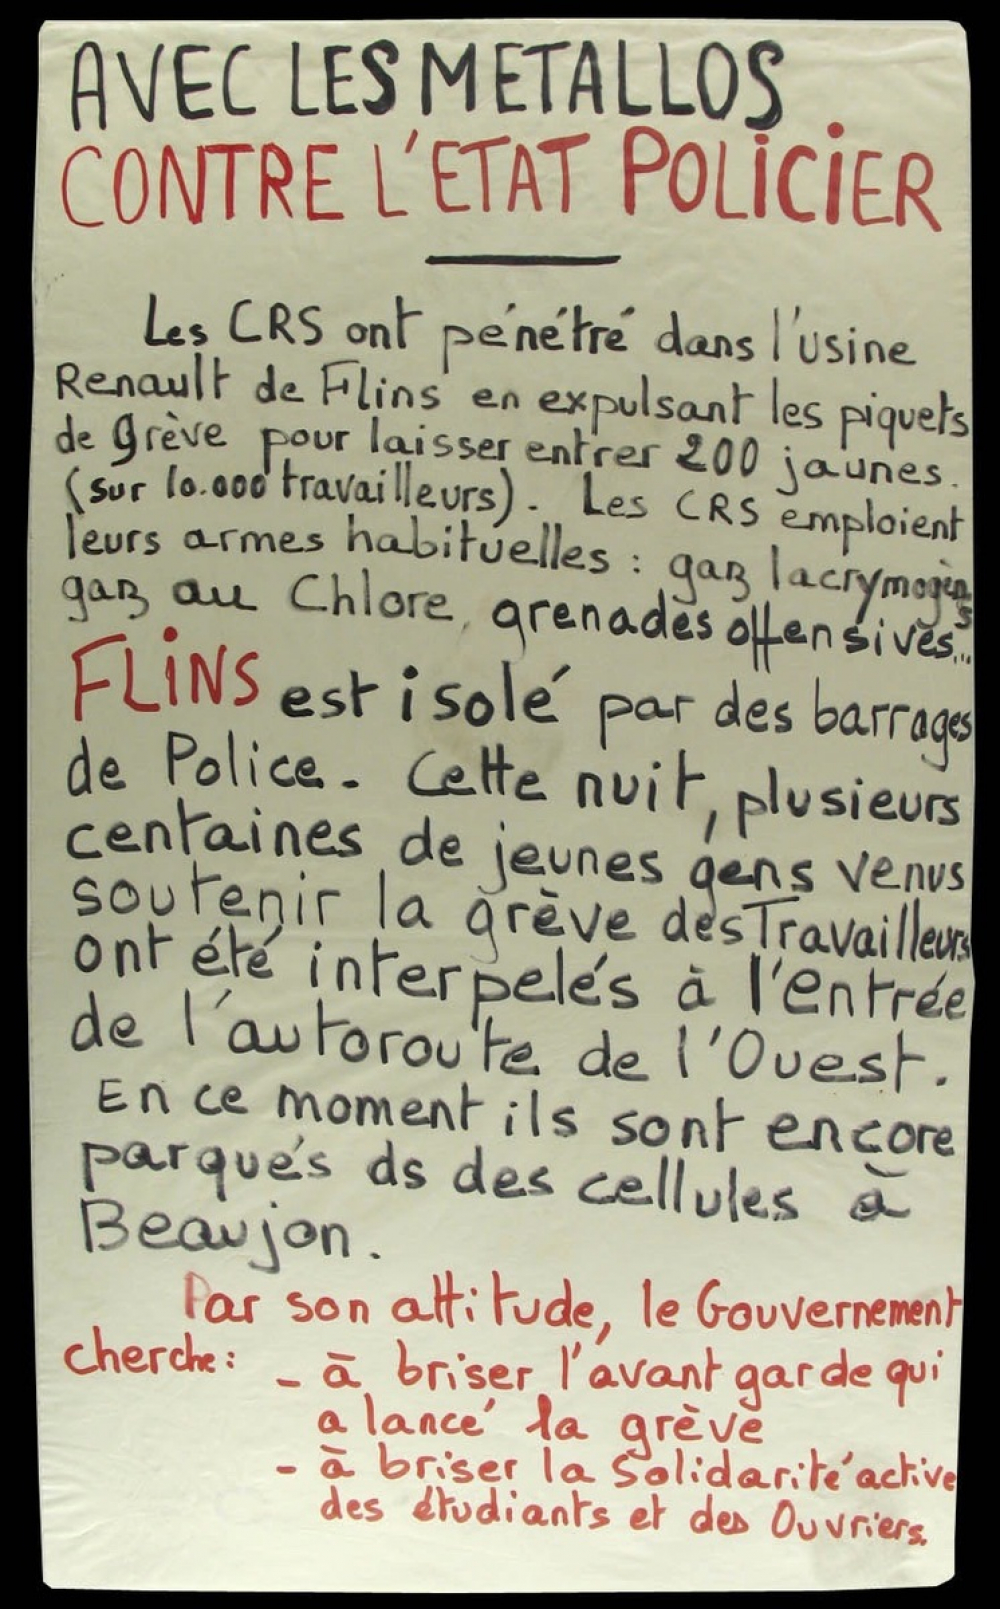 AVEC LES METALLOS
CONTRE L'ETAT POLICIER
Les CRS ont pénétré dans l'usine
Renault de Flins en expulsant les piquets
de grève pour laisser entrer 200 jaunes.
(sur 10.000 travailleurs). Les CRS emploient
leurs armes habituelles : gaz lacrymogènes
gaz au Chlore, grenades offensives...
FLINS est isolé par des barrages
de Police. Cette nuit, plusieurs
centaines de jeunes gens venus
soutenir la grève des Travailleurs
ont été interpelés à l'entrée
de l'autoroute de l'Ouest.
En ce moment ils sont encore
parqués ds des cellules à
Beaujon.
Par son attitude, le Gouvernement
cherche : - à briser l'avant garde qui
a lancé la grève
- à briser la Solidarité active
des étudiants et des Ouvriers.